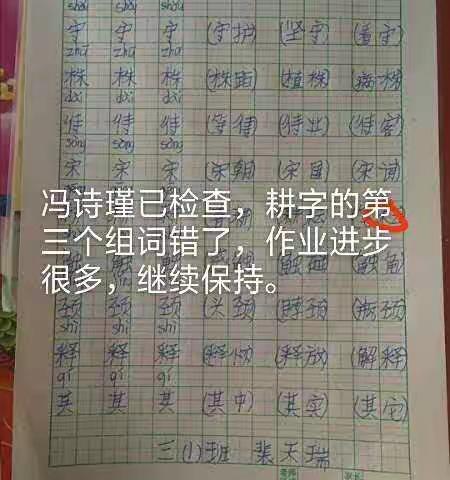 shǒu shǒu shǒu
守 守 守 (守护) (坚守) (看守)
zhū zhū zhū
株 株 株 (株距) (植株) (病株)
dài dài dài
待 待 待 (等待) (待业) (待客)
sòng sòng sòng
宋 宋 宋 (宋朝) (宋国) (宋词)
冯诗瑾已检查，耕字的第
三个组词错了，作业进步
很多，继续保持。
颈 颈 颈 (头颈) (脖颈) (瓶颈)
shì shì shì
释 释 释 (释怀) (释放) (解释)
qí qí qí
其 其 其 (其中) (其实) (其它)
三(1)班 裴天瑞